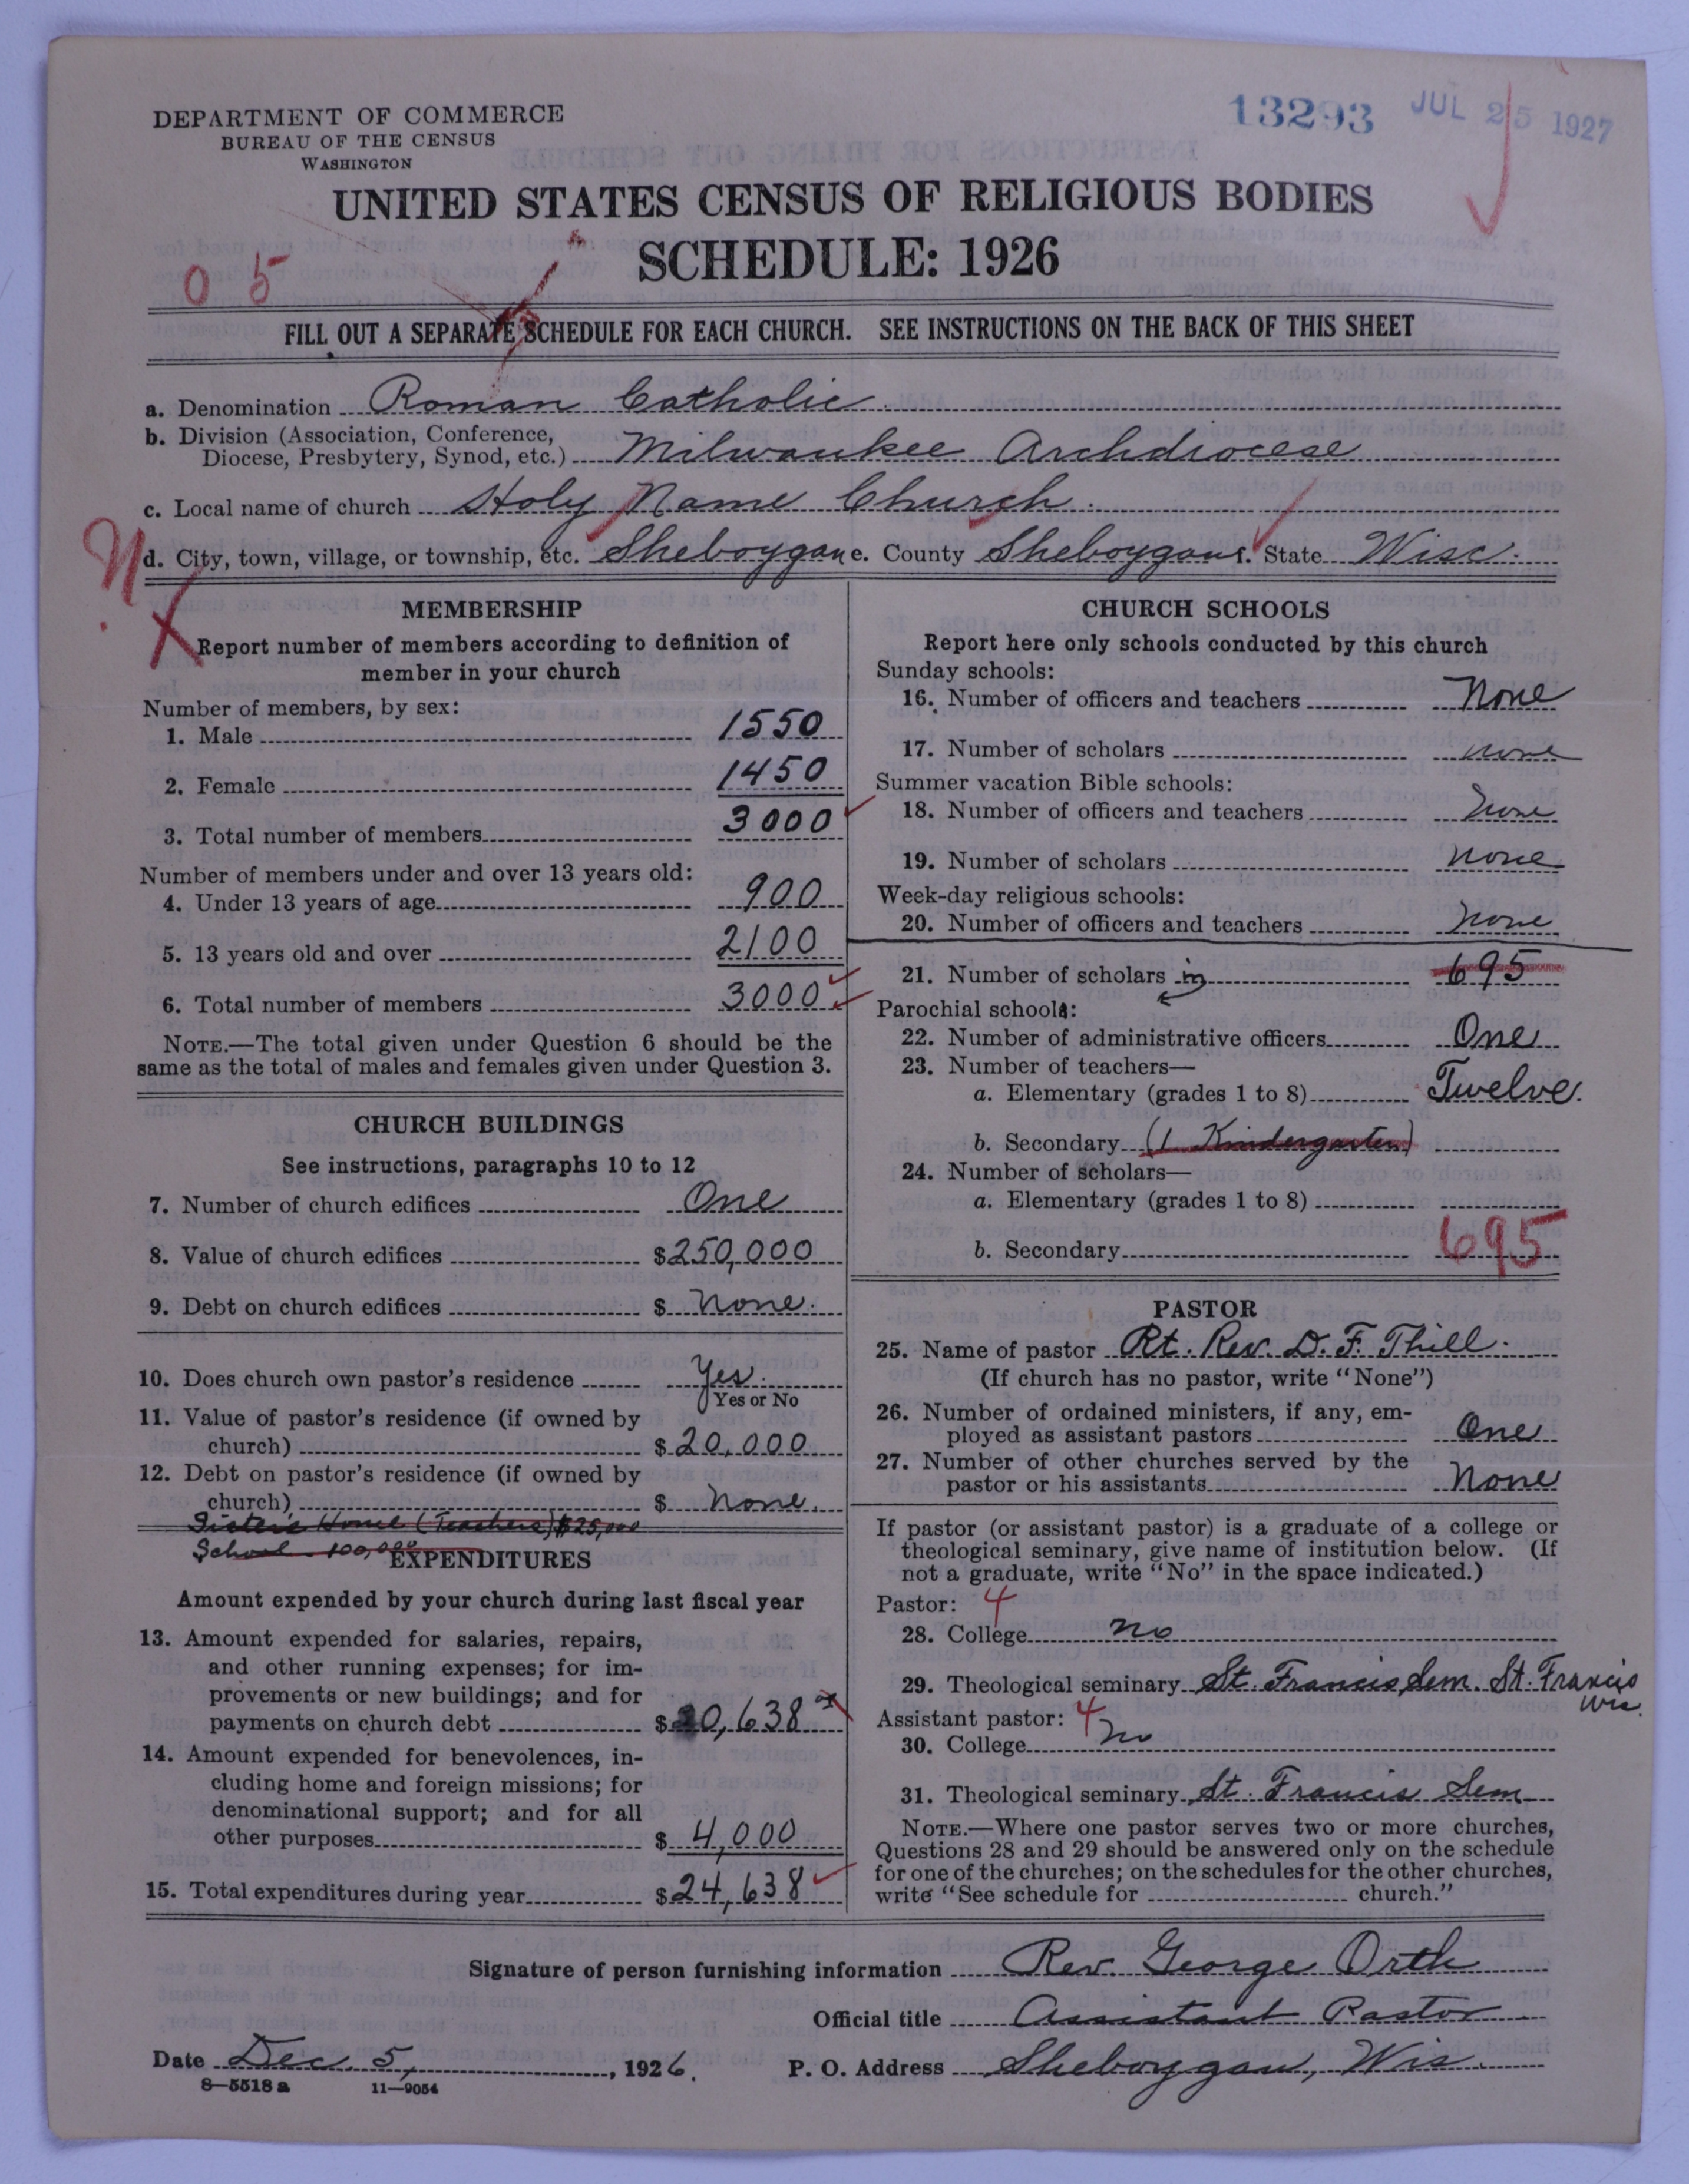 13293 JUL 25 1927
DEPARTMENT OF COMMERCE
BUREAU OF THE CENSUS
WASHINGTON
UNITED STATES CENSUS OF RELIGIOUS BODIES
SCHEDULE: 1926
0 5
FILL OUT A SEPARATE SCHEDULE FOR EACH CHURCH. SEE INSTRUCTIONS ON THE BACK OF THIS SHEET
a. Denomination Roman Catholic
b. Division (Association, Conference,
Diocese, Presbytery, Synod, etc.) Milwaukee Archdiocese
c. Local name of church Holy Name Church
d. City, town, village, or township, etc. Sheboygan e. County Sheboygan f. State Wisc.
MEMBERSHIP
Report number of members according to definition of
member in your church
Number of members, by sex:
1. Male 1550
2. Female 1450
3. Total number of members 3000
Number of members under and over 13 years old:
4. Under 13 years of age 900
5. 13 years old and over 2100
6. Total number of members 3000
NOTE.—The total given under Question 6 should be the
same as the total of males and females given under Question 3.
CHURCH BUILDINGS
See instructions, paragraphs 10 to 12
7. Number of church edifices One
8. Value of church edifices $250,000
9. Debt on church edifices $ None.
10. Does church own pastor's residence Yes.
Yes or No
11. Value of pastor's residence (if owned by
church) $20,000
12. Debt on pastor's residence (if owned by
church) $ None.
Sisters Home (Teachers) $25,000
School 100,000
EXPENDITURES
Amount expended by your church during last fiscal year
13. Amount expended for salaries, repairs,
and other running expenses; for im-
provements or new buildings; and for
payments on church debt $20,638
14. Amount expended for benevolences, in-
cluding home and foreign missions; for
denominational support; and for all
other purposes $4,000
15. Total expenditures during year $24,638
CHURCH SCHOOLS
Report here only schools conducted by this church
Sunday schools:
16. Number of officers and teachers None
17. Number of scholars none
Summer vacation Bible schools:
18. Number of officers and teachers None
19. Number of scholars none
Week-day religious schools:
20. Number of officers and teachers none
21. Number of scholars in 695
Parochial schools:
22. Number of administrative officers One
23. Number of teachers—
a. Elementary (grades 1 to 8) Twelve.
b. Secondary (1 Kindergarten)
24. Number of scholars—
a. Elementary (grades 1 to 8)
b. Secondary 695
PASTOR
25. Name of pastor Rt. Rev. D. F. Thill.
(If church has no pastor, write "None")
26. Number of ordained ministers, if any, em-
ployed as assistant pastors One
27. Number of other churches served by the
pastor or his assistants None
If pastor (or assistant pastor) is a graduate of a college or
theological seminary, give name of institution below. (If
not a graduate, write "No" in the space indicated.)
Pastor: 4
28. College no
29. Theological seminary St. Francis Sem. St. Francis
Wis.
Assistant pastor: 4
30. College no
31. Theological seminary St. Francis Sem
NOTE.—Where one pastor serves two or more churches,
Questions 28 and 29 should be answered only on the schedule
for one of the churches; on the schedules for the other churches,
write "See schedule for church."
Signature of person furnishing information Rev. George Orth
Official title Assistant Pastor
Date Dec. 5, 1926. P. O. Address Sheboygan, Wis.
8—5518 a 11—9054